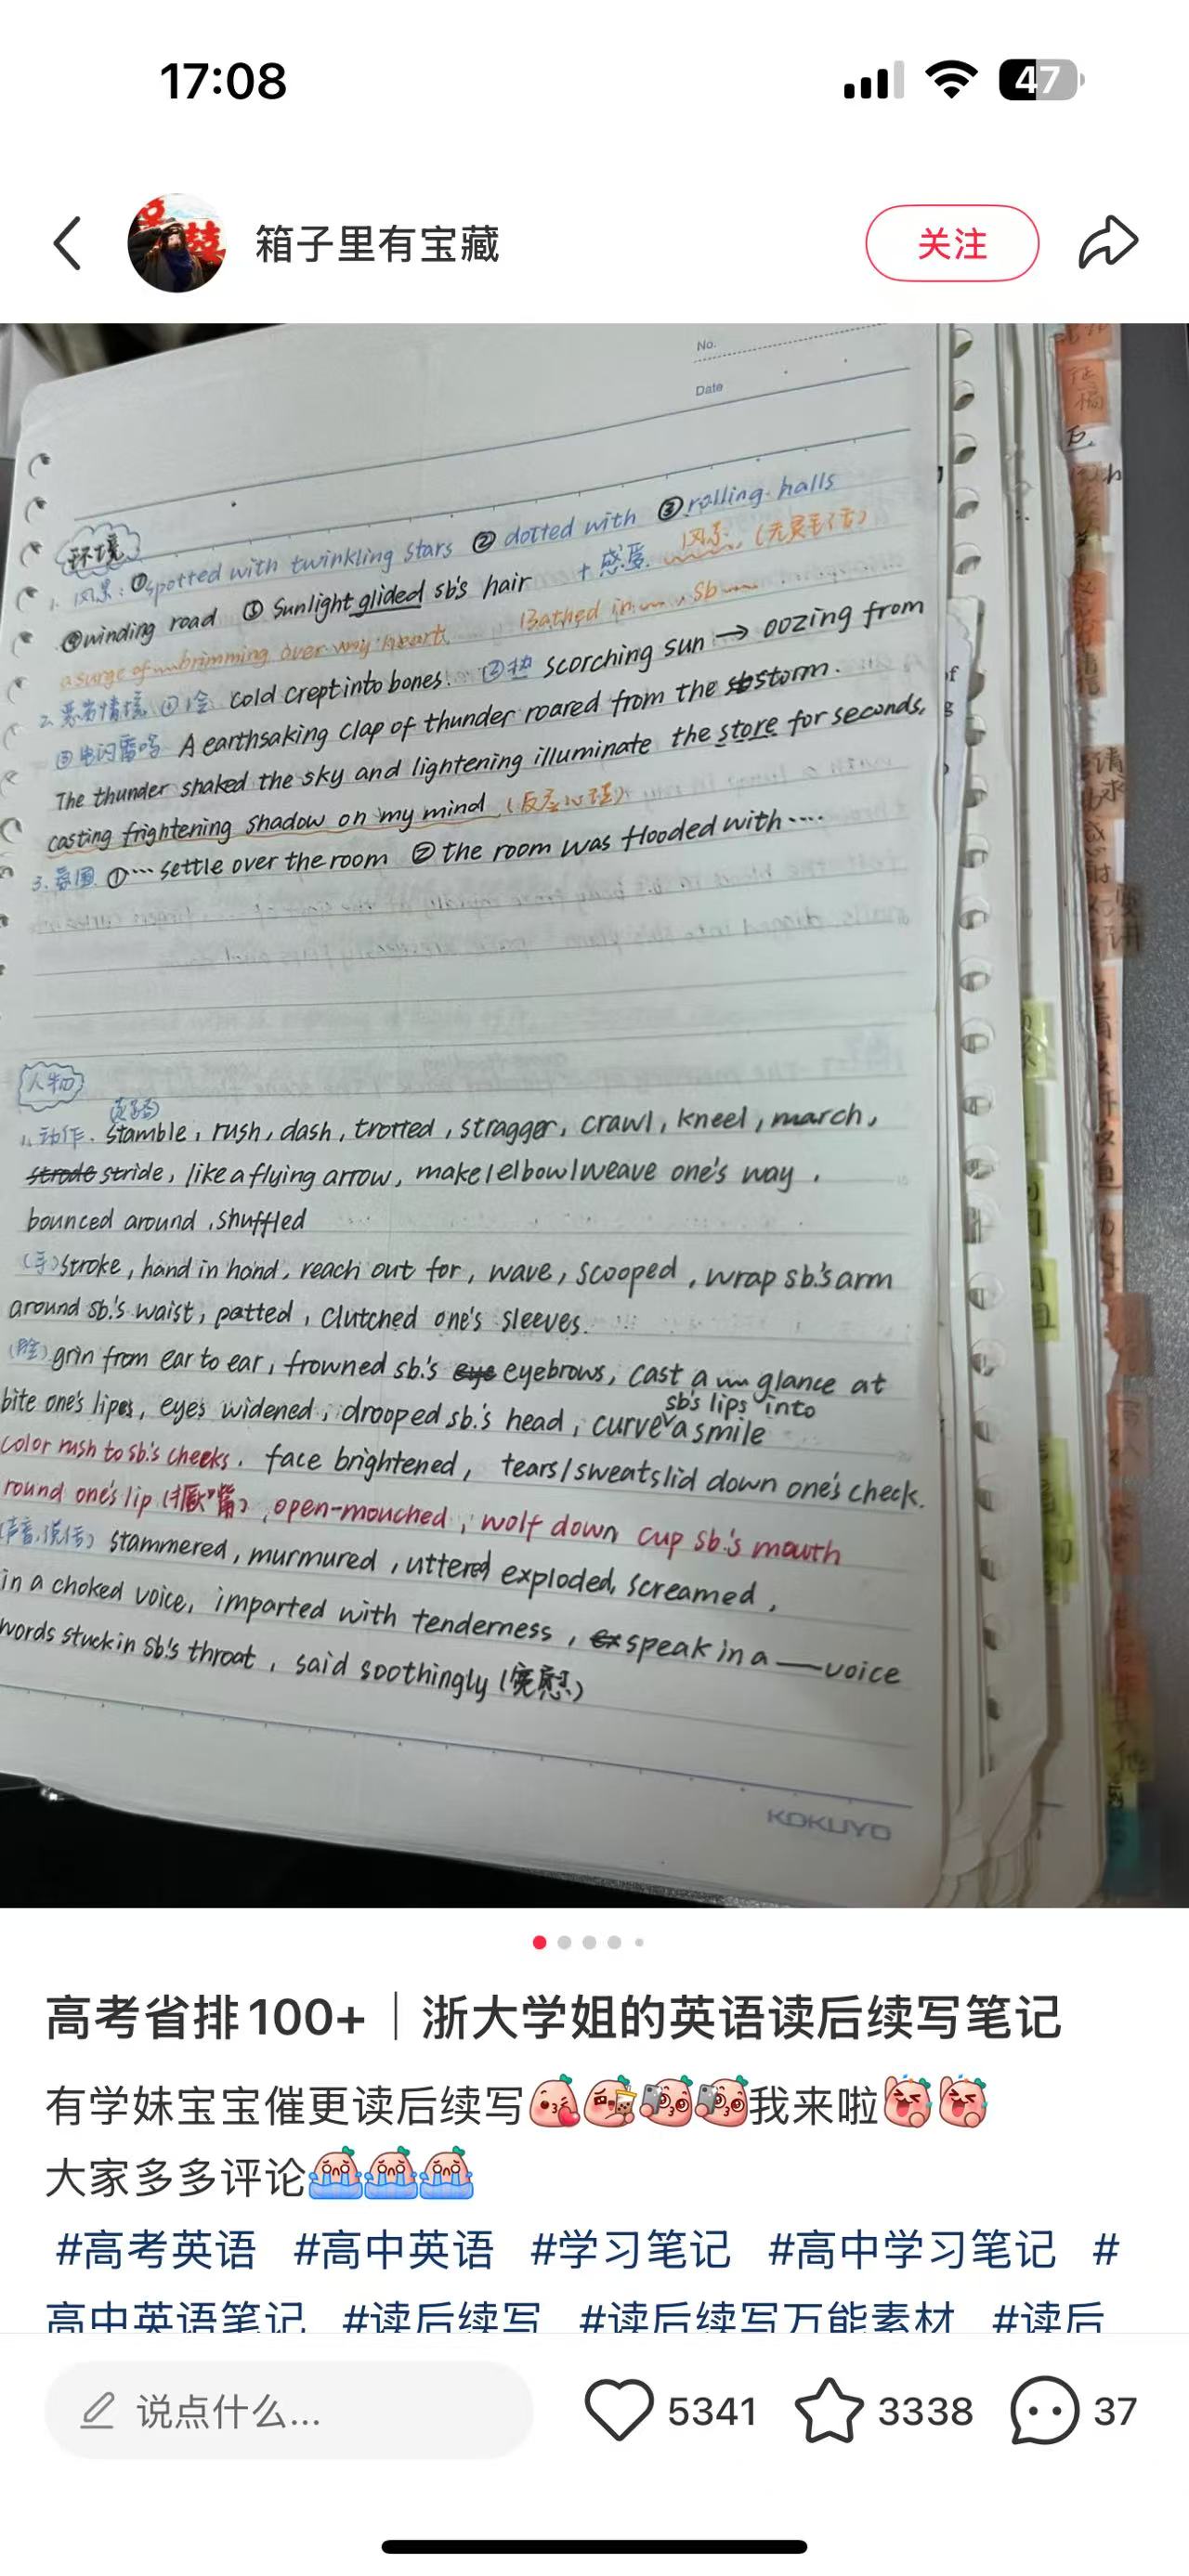 17:08
47
箱子里有宝藏
关注
No.
Date
环境
1. 风景: ①spotted with twinkling stars ② dotted with ③rolling halls
④winding road ⑤ Sunlight glided sb's hair + 感受 风景 (无灵主语)
a surge of brimming over my heart. Bathed in , sb
2. 恶劣情境 ①冷 cold crept into bones. ②热 scorching sun → oozing from
③电闪雷鸣 A earthsaking clap of thunder roared from the storm.
The thunder shaked the sky and lightening illuminate the store for seconds,
casting frightening shadow on my mind (反应心理)
3. 氛围 ①… settle over the room ② the room was flooded with ….
人物
1. 动作. stamble, rush, dash, trotted, stragger, crawl, kneel, march,
strode stride, like a flying arrow, make/elbow/weave one's way,
bounced around, shuffled
(手) stroke, hand in hand, reach out for, wave, scooped, wrap sb.'s arm
around sb.'s waist, patted, clutched one's sleeves.
(脸) grin from ear to ear, frowned sb.'s eye eyebrows, cast a glance at
bite one's lips, eyes widened, drooped sb.'s head, curve sb's lips into a smile
color rush to sb.'s cheeks. face brightened, tears/sweat slid down one's check.
round one's lip (撅嘴), open-mouched, wolf down cup sb.'s mouth
(声音,说话) stammered, murmured, uttered exploded, screamed,
in a choked voice, imparted with tenderness, ex speak in a —voice
words stuck in sb.'s throat, said soothingly (宽慰)
KOKUYO
高考省排100+｜浙大学姐的英语读后续写笔记
有学妹宝宝催更读后续写我来啦
大家多多评论
#高考英语 #高中英语 #学习笔记 #高中学习笔记 #
高中英语笔记 #读后续写 #读后续写万能素材 #读后
说点什么...
5341
3338
37